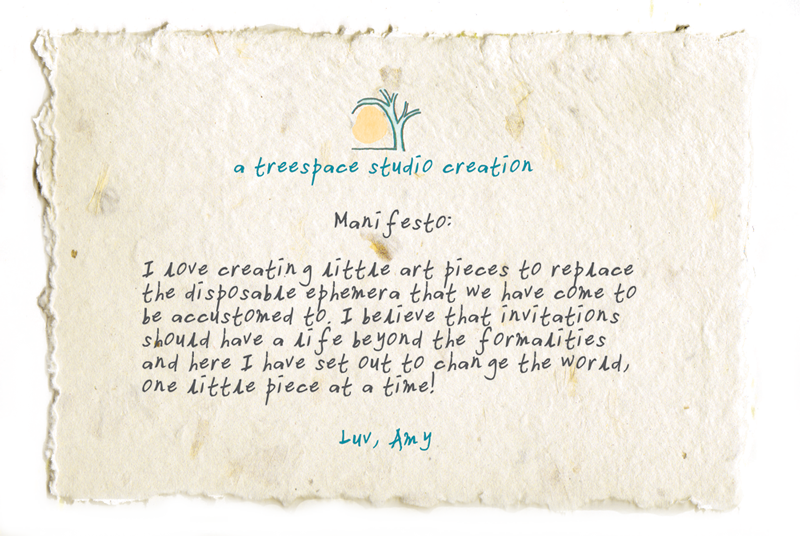 a treespace studio creation
Manifesto:
I love creating little art pieces to replace
the disposable ephemera that we have come to
be accustomed to. I believe that invitations
should have a life beyond the formalities
and here I have set out to change the world,
one little piece at a time!
Luv, Amy